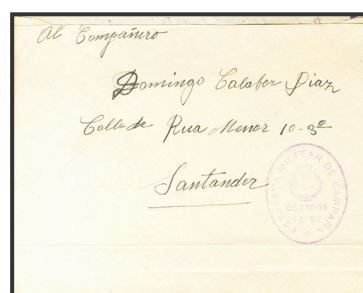 Al Compañero
Domingo Calabor Diaz
Calle de Rua Menor 10-3º
Santander
MILITAR DE CAMPAÑA
CORREOS